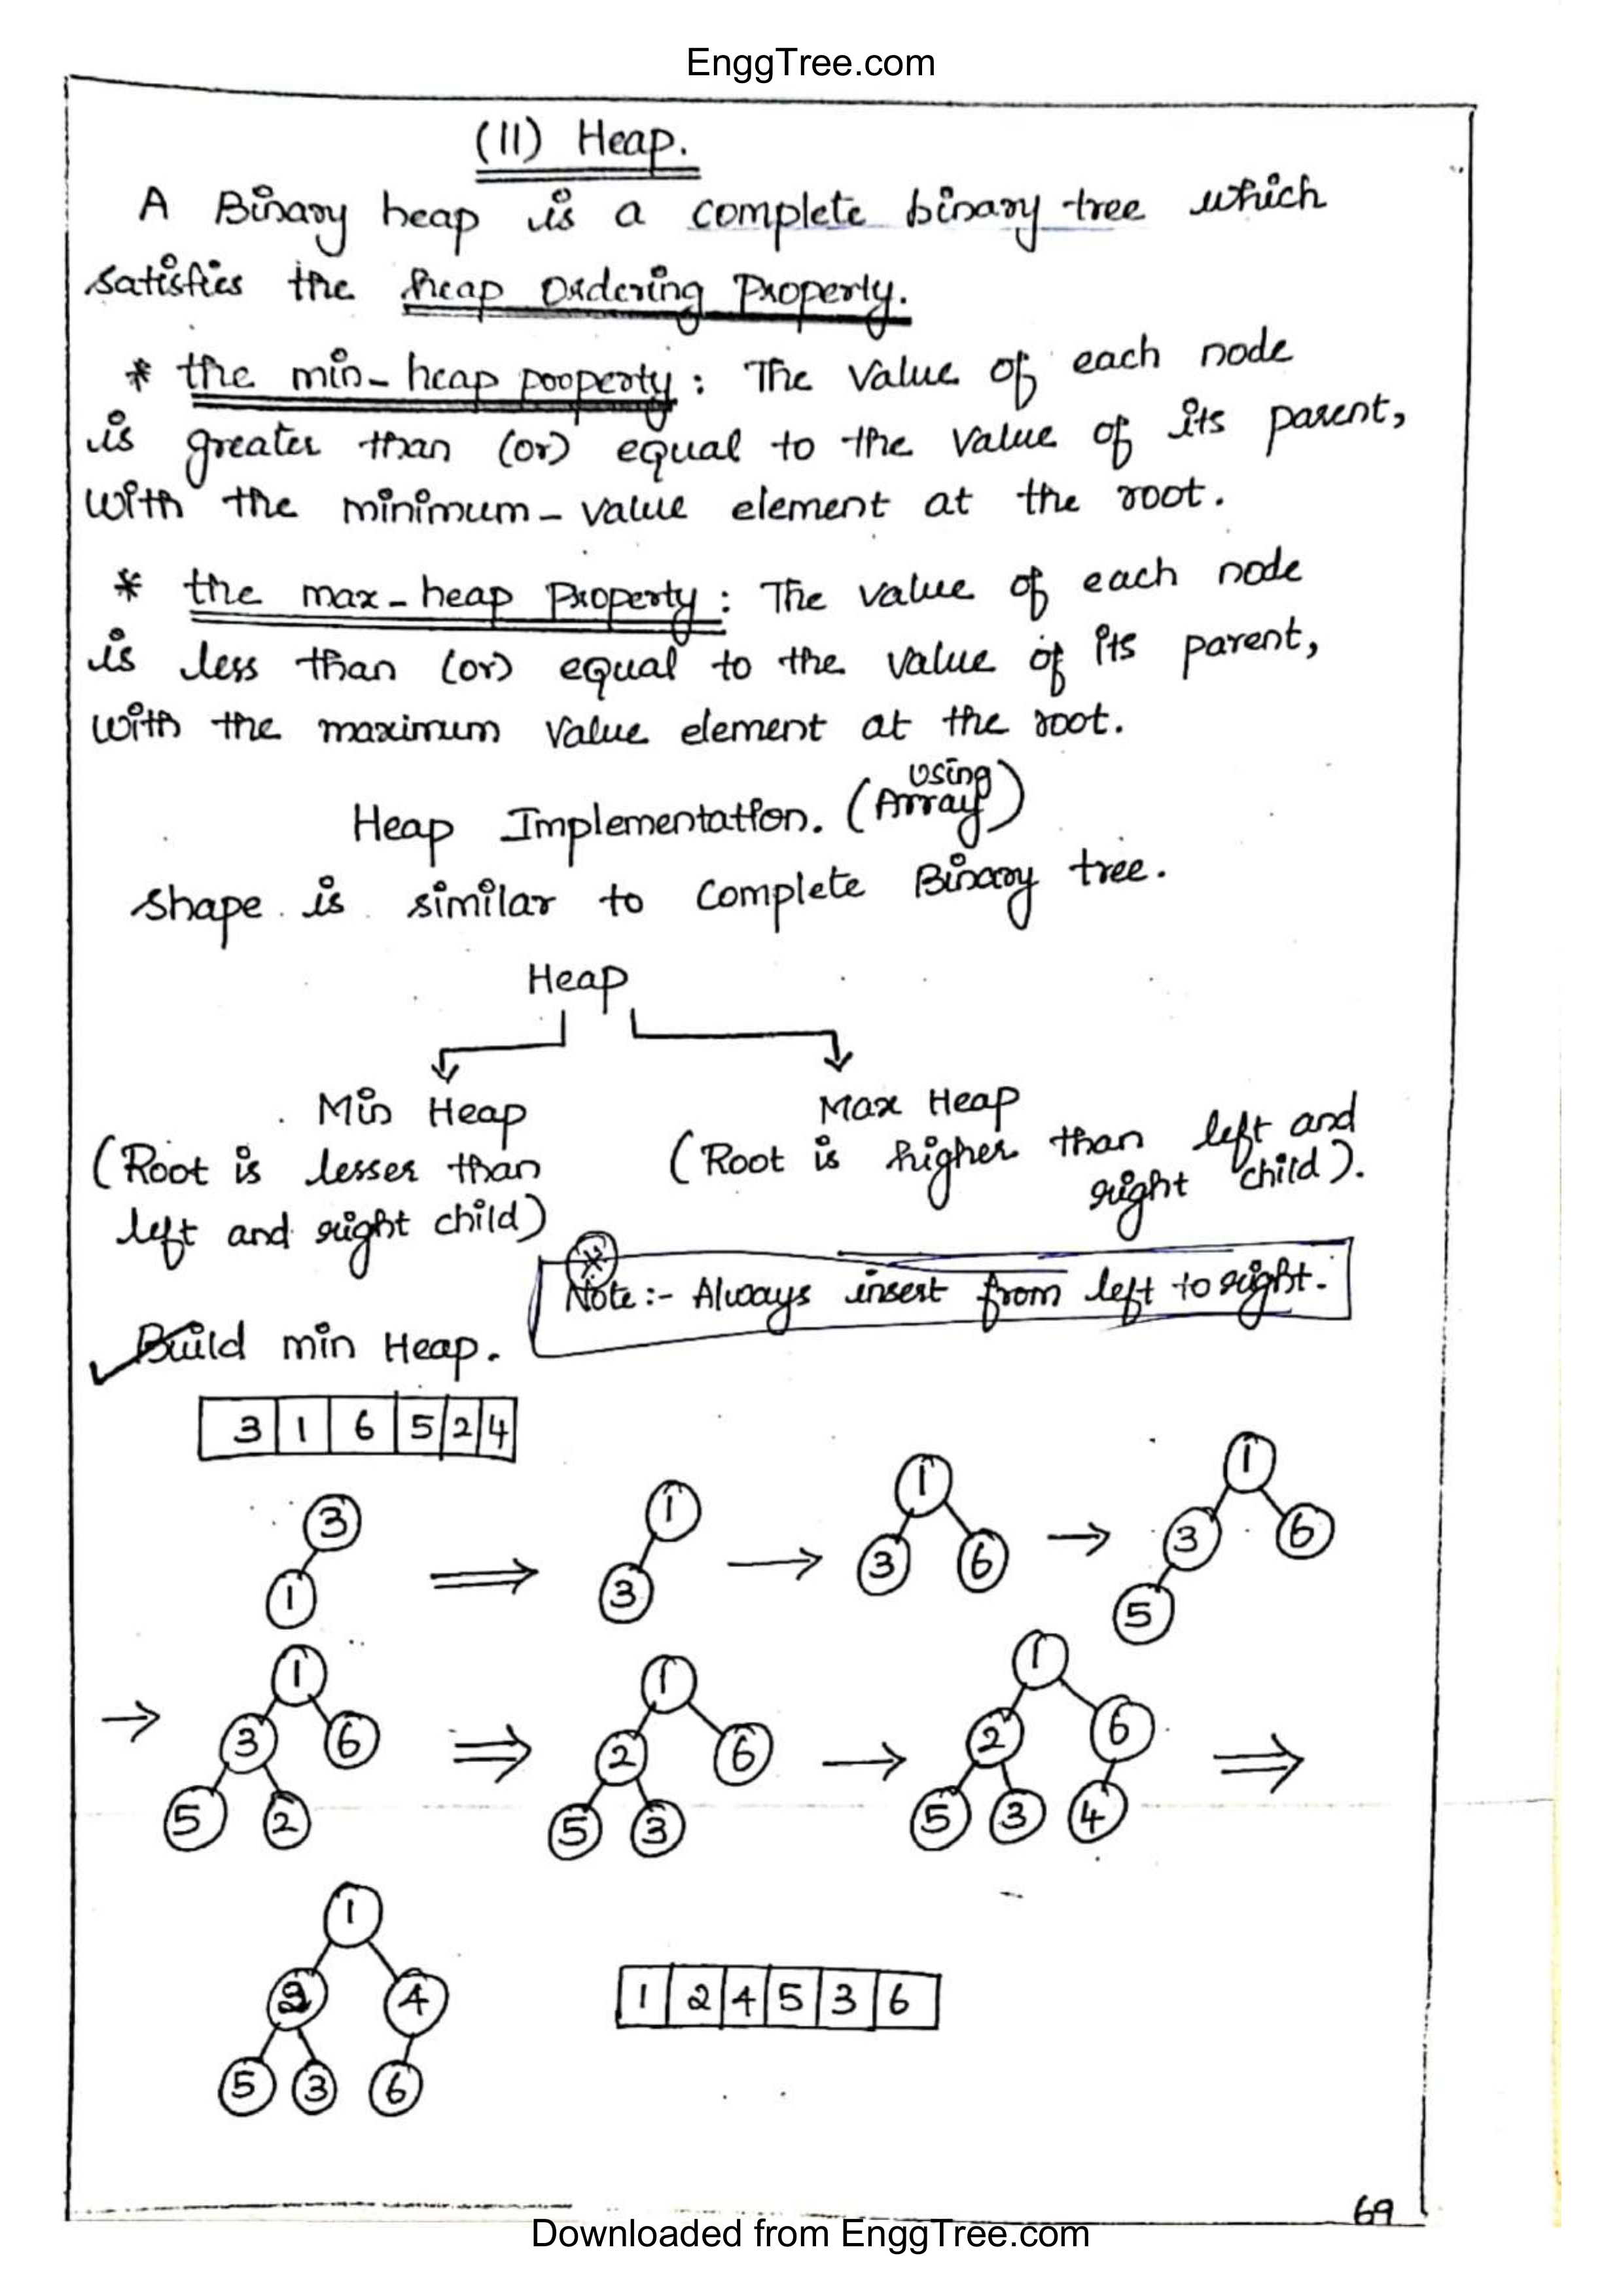 EnggTree.com
(II) Heap.
A Binary heap is a complete binary tree which
satisfies the heap Ordering Property.
* the min-heap property : The value of each node
is greater than (or) equal to the value of its parent,
with the minimum-value element at the root.
* the max-heap Property : The value of each node
is less than (or) equal to the value of its parent,
with the maximum value element at the root.
Heap Implementation. (Using Array)
shape is similar to Complete Binary tree.
Heap
Min Heap
Max Heap
(Root is lesser than
left and right child)
(Root is higher than left and
right child).
Note :- Always insert from left to right.
Build min Heap.
3 1 6 5 2 4
3 1
1 3
1 3 6
1 3 6 5
1 3 6 5 2
1 2 6 5 3
1 2 6 5 3 4
1 2 4 5 3 6
1 2 4 5 3 6
69
Downloaded from EnggTree.com